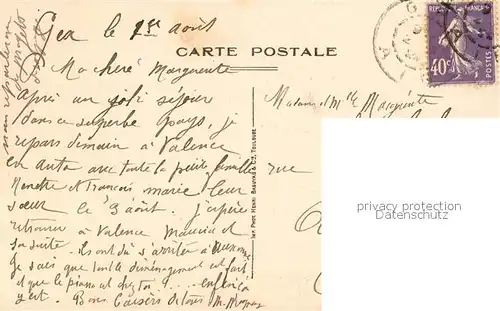 Gex le 1er août
CARTE POSTALE
REPUBLIQUE FRANÇAISE
40c
POSTES
Ma chère Marguerite
après un joli séjour
dans ce superbe pays, je
repars demain à Valence
en auto avec toute la petite famille
Nenette et François marie leur
sœur le 3 août. J'espère
retrouver à Valence Maurice et
sa suite. ils ont dû s'arrêter à
Je sais que tout le déménagement est fait
et que le piano est chez toi ..... enfin ça
y est. Bons baisers de tous M.
Madame et Mlle Marguerite
rue
Imp. Phot. Henri Basuyau & Cie, Toulouse
privacy protected
Datenschutz